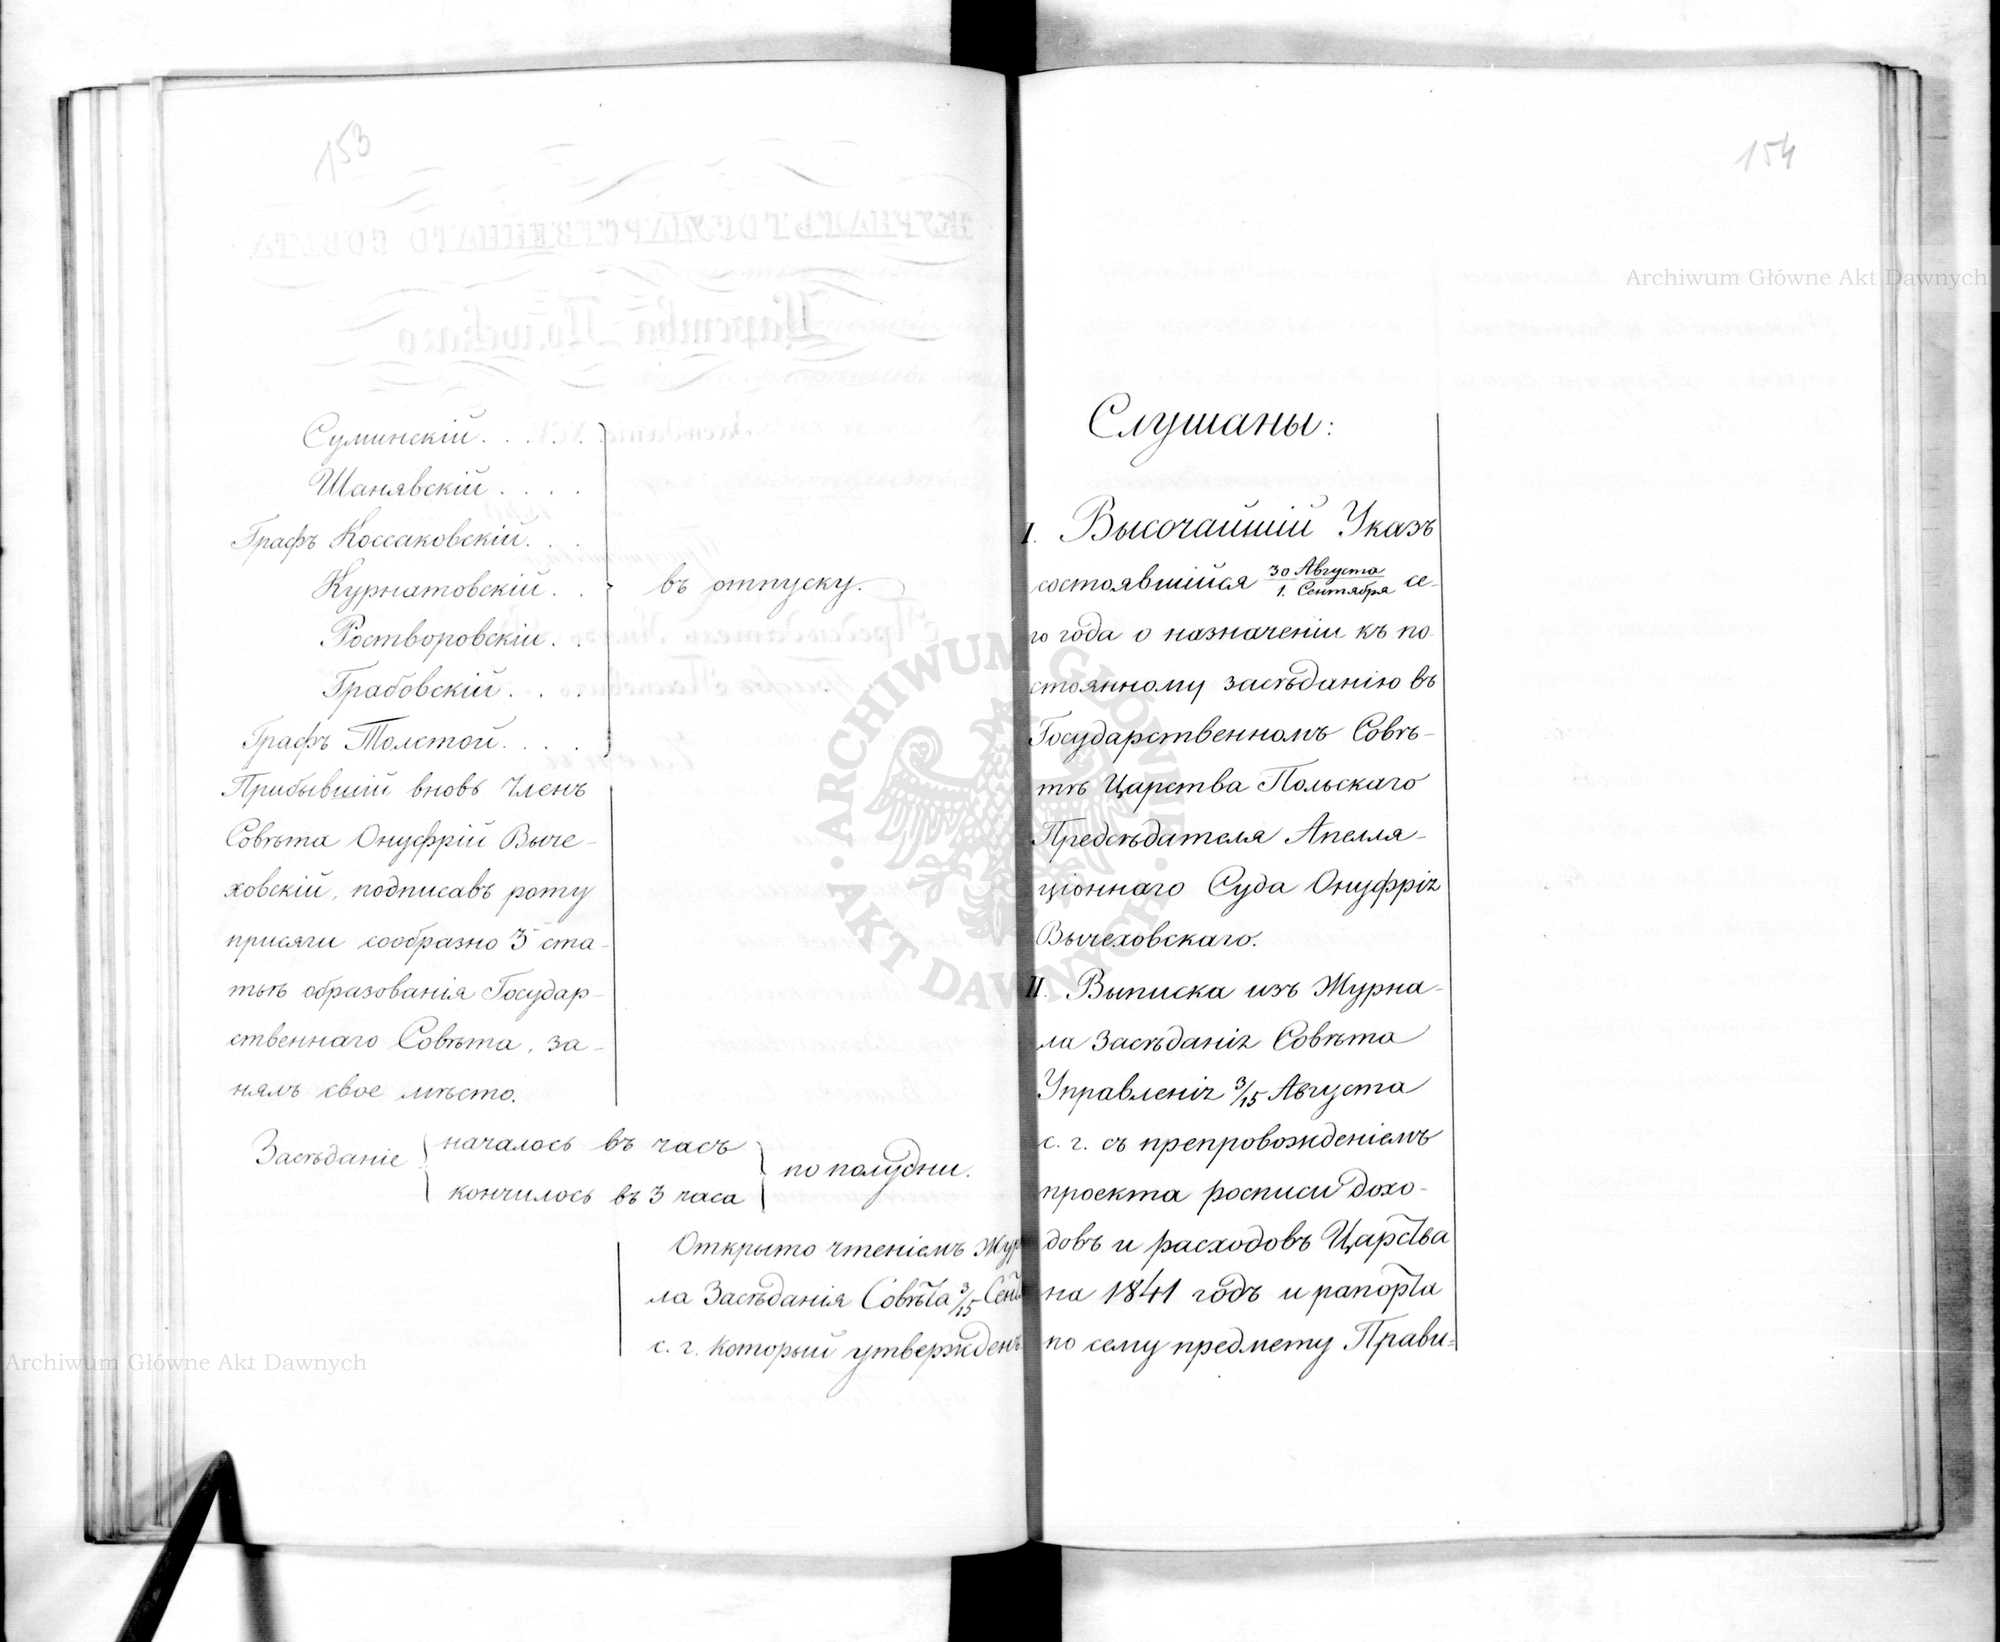 153
Суминскій . . . . .
Шанявскій . . . .
Графъ Коссаковскій . . .
Курнатовскій . . въ отпуску.
Ростворовскій . .
Грабовскій . . . .
Графъ Толстой . . . .
Прибывшій вновь Членъ
Совѣта Онуфрій Выче-
ховскій, подписавъ роту
присяги сообразно 3 ста-
тьѣ образованія Государ-
ственнаго Совѣта, за-
нялъ свое мѣсто.
Засѣданіе началось въ часъ
кончилось въ 3 часа по полудни.
Открыто чтеніемъ Жур
ла Засѣданія Совѣта 3/15 Сент
с. г. который утвержденъ
154
Слушаны:
I. Высочайшій Указъ
состоявшійся 30 Августа / 1. Сентября се-
го года о назначеніи къ по-
стоянному засѣданію въ
Государственномъ Совѣ-
тѣ Царства Польскаго
Предсѣдателя Апелля-
ціоннаго Суда Онуфрія
Вычеховскаго.
II. Выписка изъ Журна-
ла Засѣданія Совѣта
Управленія 3/15 Августа
с. г. съ препровожденіемъ
проекта росписи дохо-
довъ и расходовъ Царства
на 1841 годъ и рапорта
по сему предмету Прави-
Archiwum Główne Akt Dawnych
Archiwum Główne Akt Dawnych
ARCHIWUM GŁÓWNE
AKT DAWNYCH